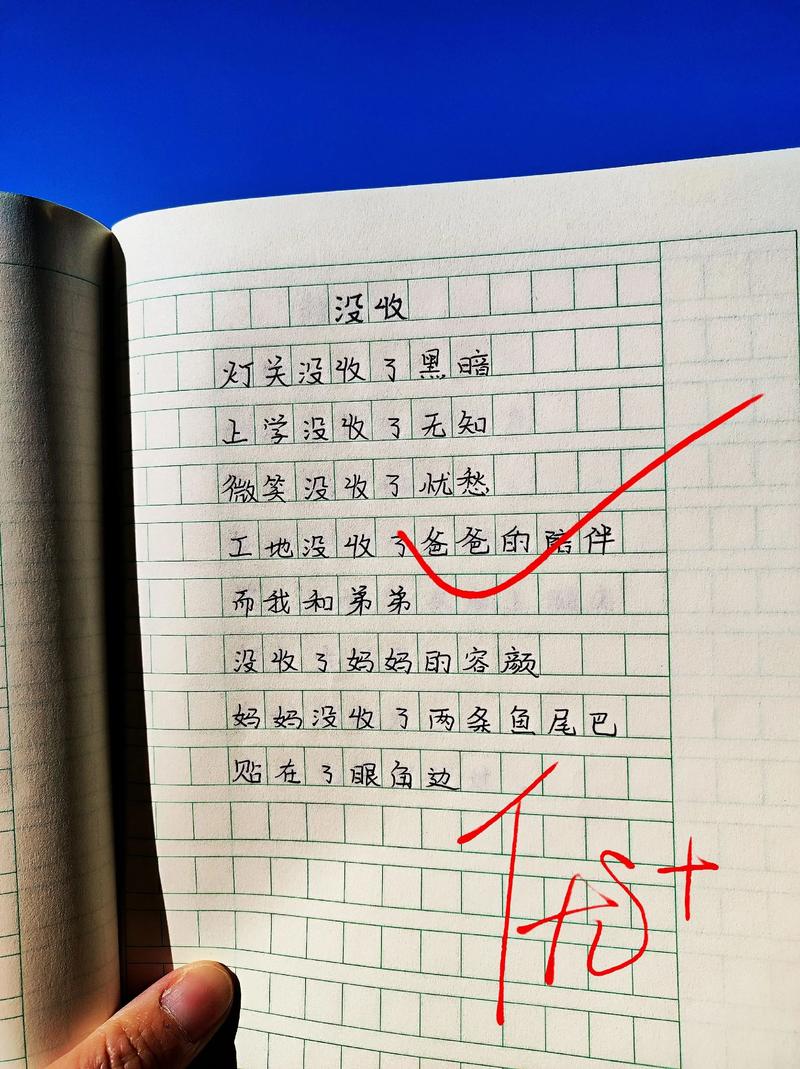 没收
灯关没收了黑暗
上学没收了无知
微笑没收了忧愁
工地没收了爸爸的陪伴
而我和弟弟
没收了妈妈的容颜
妈妈没收了两条鱼尾巴
贴在了眼角边